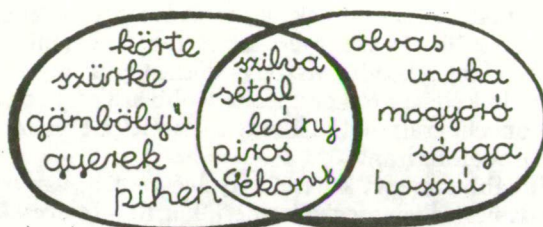 körte
szürke
gömbölyű
gyerek
pihen
szilva
sétál
leány
piros
vékony
olvas
unoka
mogyoró
sárga
hosszú